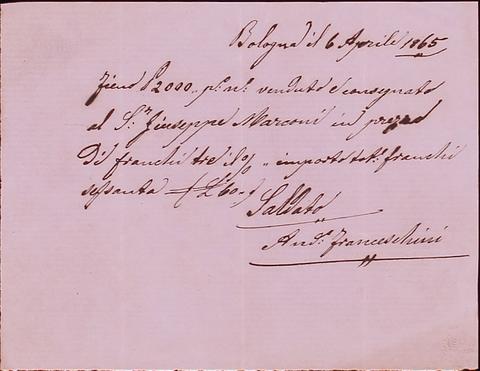 Bologna il 6 Aprile 1865
Fieno £ 2000.. p. n. venduto e consegnato
al S.r Giuseppe Marconi in prezzo
di franchi tre il % .. importo tot. franchi
sessanta £ 60..
Saldato
And. Franceschini